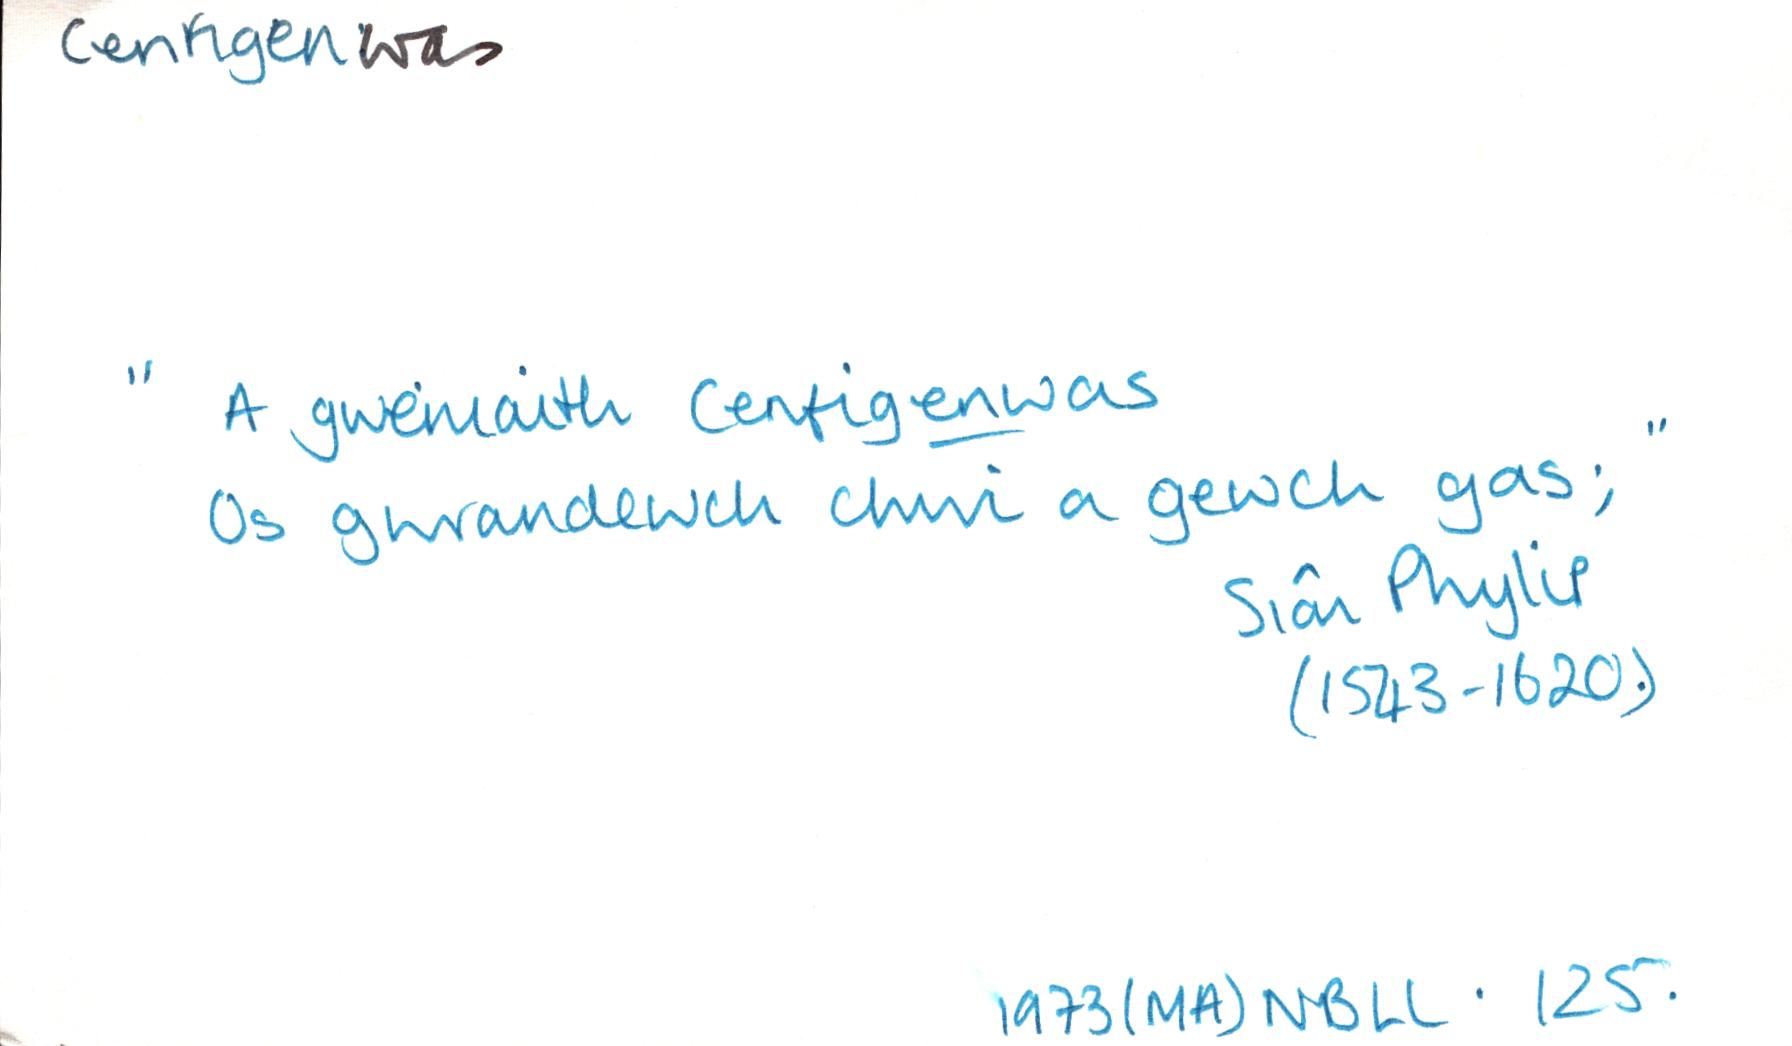 Centigenwas
" A gweniaith Centigenwas
Os gwrandewch chwi a gewch gas; "
Siôn Phylip
(1543-1620.)
1973(MA) NBLL . 125.